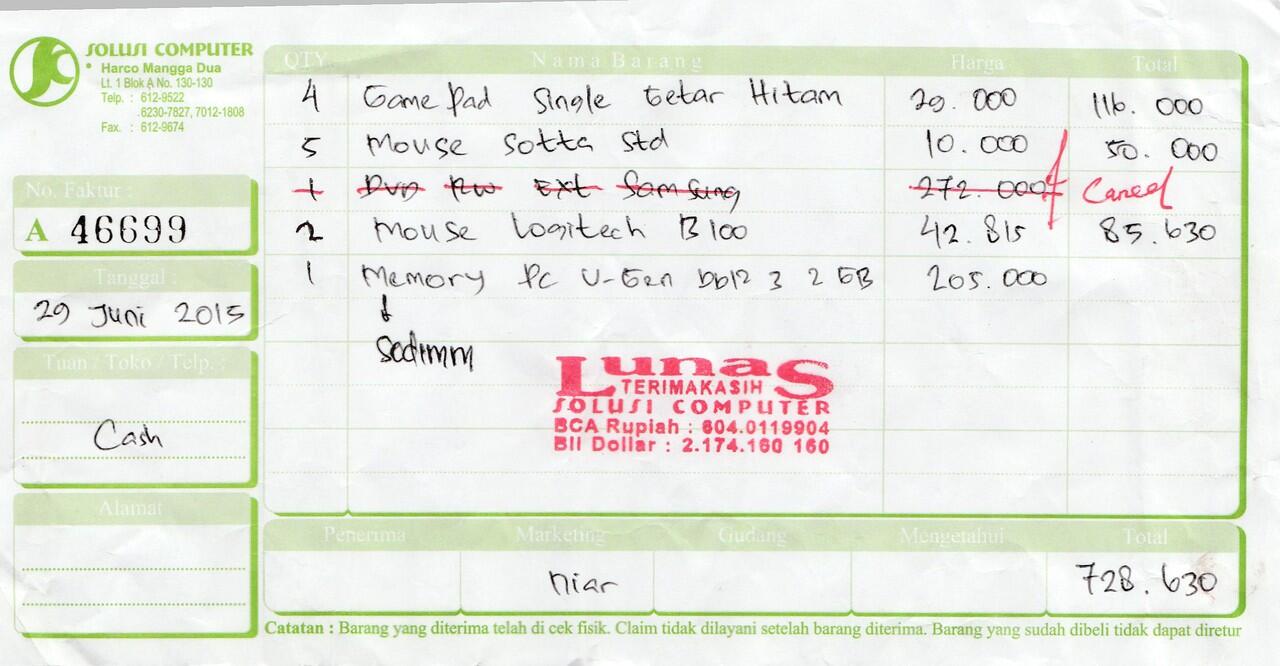 SOLUSI COMPUTER
• Harco Mangga Dua
Lt. 1 Blok A No. 130-130
Telp. : 612-9522
6230-7827, 7012-1808
Fax. : 612-9674
No. Faktur :
A 46699
Tanggal :
29 Juni 2015
Tuan / Toko / Telp. :
Cash
Alamat
QTY Nama Barang Harga Total
4 Game Pad Single Getar Hitam 29.000 116.000
5 Mouse Sotta Std 10.000 50.000
1 DVD RW EXT Samsung 272.000 Cancel
2 Mouse Logitech B100 42.815 85.630
1 Memory PC V-Gen DDR 3 2 GB 205.000
Sodimm
LunaS
TERIMAKASIH
SOLUSI COMPUTER
BCA Rupiah : 604.0119904
BII Dollar : 2.174.160 160
Penerima Marketing Gudang Mengetahui Total
Niar 728.630
Catatan : Barang yang diterima telah di cek fisik. Claim tidak dilayani setelah barang diterima. Barang yang sudah dibeli tidak dapat diretur